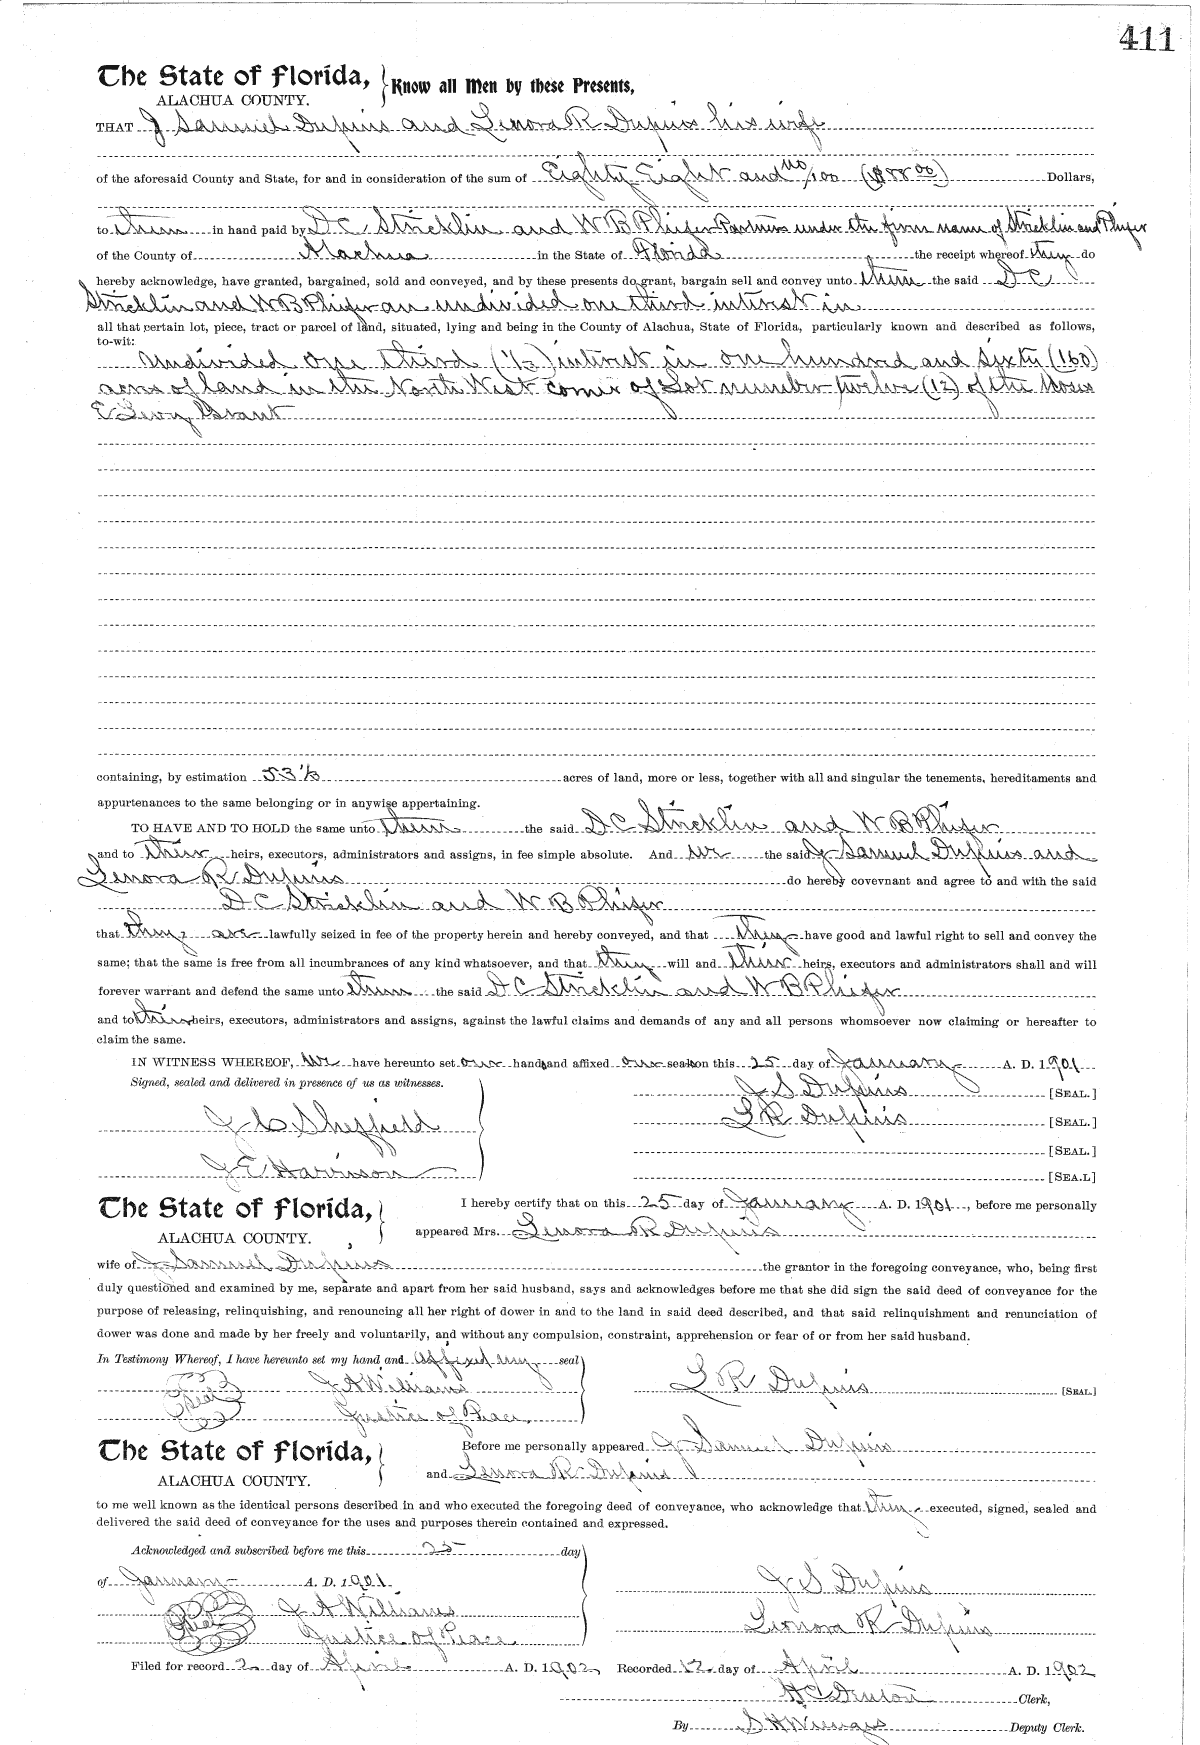 411
The State of Florida,
ALACHUA COUNTY.
Know all Men by these Presents,
THAT J Samuel Dupuis and Lenora R Dupuis his wife
of the aforesaid County and State, for and in consideration of the sum of Eighty Eight and no/100 ($88 00) Dollars,
to them in hand paid by D C Stricklin and W B Phifer Partners under the firm name of Stricklin and Phifer
of the County of Alachua in the State of Florida the receipt whereof they do
hereby acknowledge, have granted, bargained, sold and conveyed, and by these presents do grant, bargain sell and convey unto them the said D C
Stricklin and W B Phifer an undivided one third interest in
all that certain lot, piece, tract or parcel of land, situated, lying and being in the County of Alachua, State of Florida, particularly known and described as follows,
to-wit:
Undivided One third (1/3) interest in one hundred and sixty (160)
acres of land in the North West corner of Lot number twelve (12) of the Moses
E Levy Grant
containing, by estimation 53 1/3 acres of land, more or less, together with all and singular the tenements, hereditaments and
appurtenances to the same belonging or in anywise appertaining.
TO HAVE AND TO HOLD the same unto them the said D C Stricklin and W B Phifer
and to their heirs, executors, administrators and assigns, in fee simple absolute. And we the said J Samuel Dupuis and
Lenora R Dupuis do hereby covevnant and agree to and with the said
D C Stricklin and W B Phifer
that they are lawfully seized in fee of the property herein and hereby conveyed, and that they have good and lawful right to sell and convey the
same; that the same is free from all incumbrances of any kind whatsoever, and that they will and their heirs, executors and administrators shall and will
forever warrant and defend the same unto them the said D C Stricklin and W B Phifer
and to their heirs, executors, administrators and assigns, against the lawful claims and demands of any and all persons whomsoever now claiming or hereafter to
claim the same.
IN WITNESS WHEREOF, we have hereunto set our hands and affixed our seals on this 25 day of January A. D. 1901
Signed, sealed and delivered in presence of us as witnesses.
J S Dupuis [SEAL.]
J C Sheffield
L R Dupuis [SEAL.]
[SEAL.]
J E Harrison
[SEA.L]
The State of Florida,
ALACHUA COUNTY.
I hereby certify that on this 25 day of January A. D. 1901, before me personally
appeared Mrs. Lenora R Dupuis
wife of J Samuel Dupuis the grantor in the foregoing conveyance, who, being first
duly questioned and examined by me, separate and apart from her said husband, says and acknowledges before me that she did sign the said deed of conveyance for the
purpose of releasing, relinquishing, and renouncing all her right of dower in and to the land in said deed described, and that said relinquishment and renunciation of
dower was done and made by her freely and voluntarily, and without any compulsion, constraint, apprehension or fear of or from her said husband.
In Testimony Whereof, I have hereunto set my hand and affixed my seal
Seal J A Williams
L R Dupuis [SEAL.]
Justice of Peace
The State of Florida,
ALACHUA COUNTY.
Before me personally appeared J Samuel Dupuis
and Lenora R Dupuis
to me well known as the identical persons described in and who executed the foregoing deed of conveyance, who acknowledge that they executed, signed, sealed and
delivered the said deed of conveyance for the uses and purposes therein contained and expressed.
Acknowledged and subscribed before me this 25 day
of January A. D. 1901
J S Dupuis
Seal J A Williams
Justice of Peace
Leonora R Dupuis
Filed for record 2 day of April A. D. 1902 Recorded 12 day of April A. D. 1902
H C Denton Clerk,
By S H Wienges Deputy Clerk.